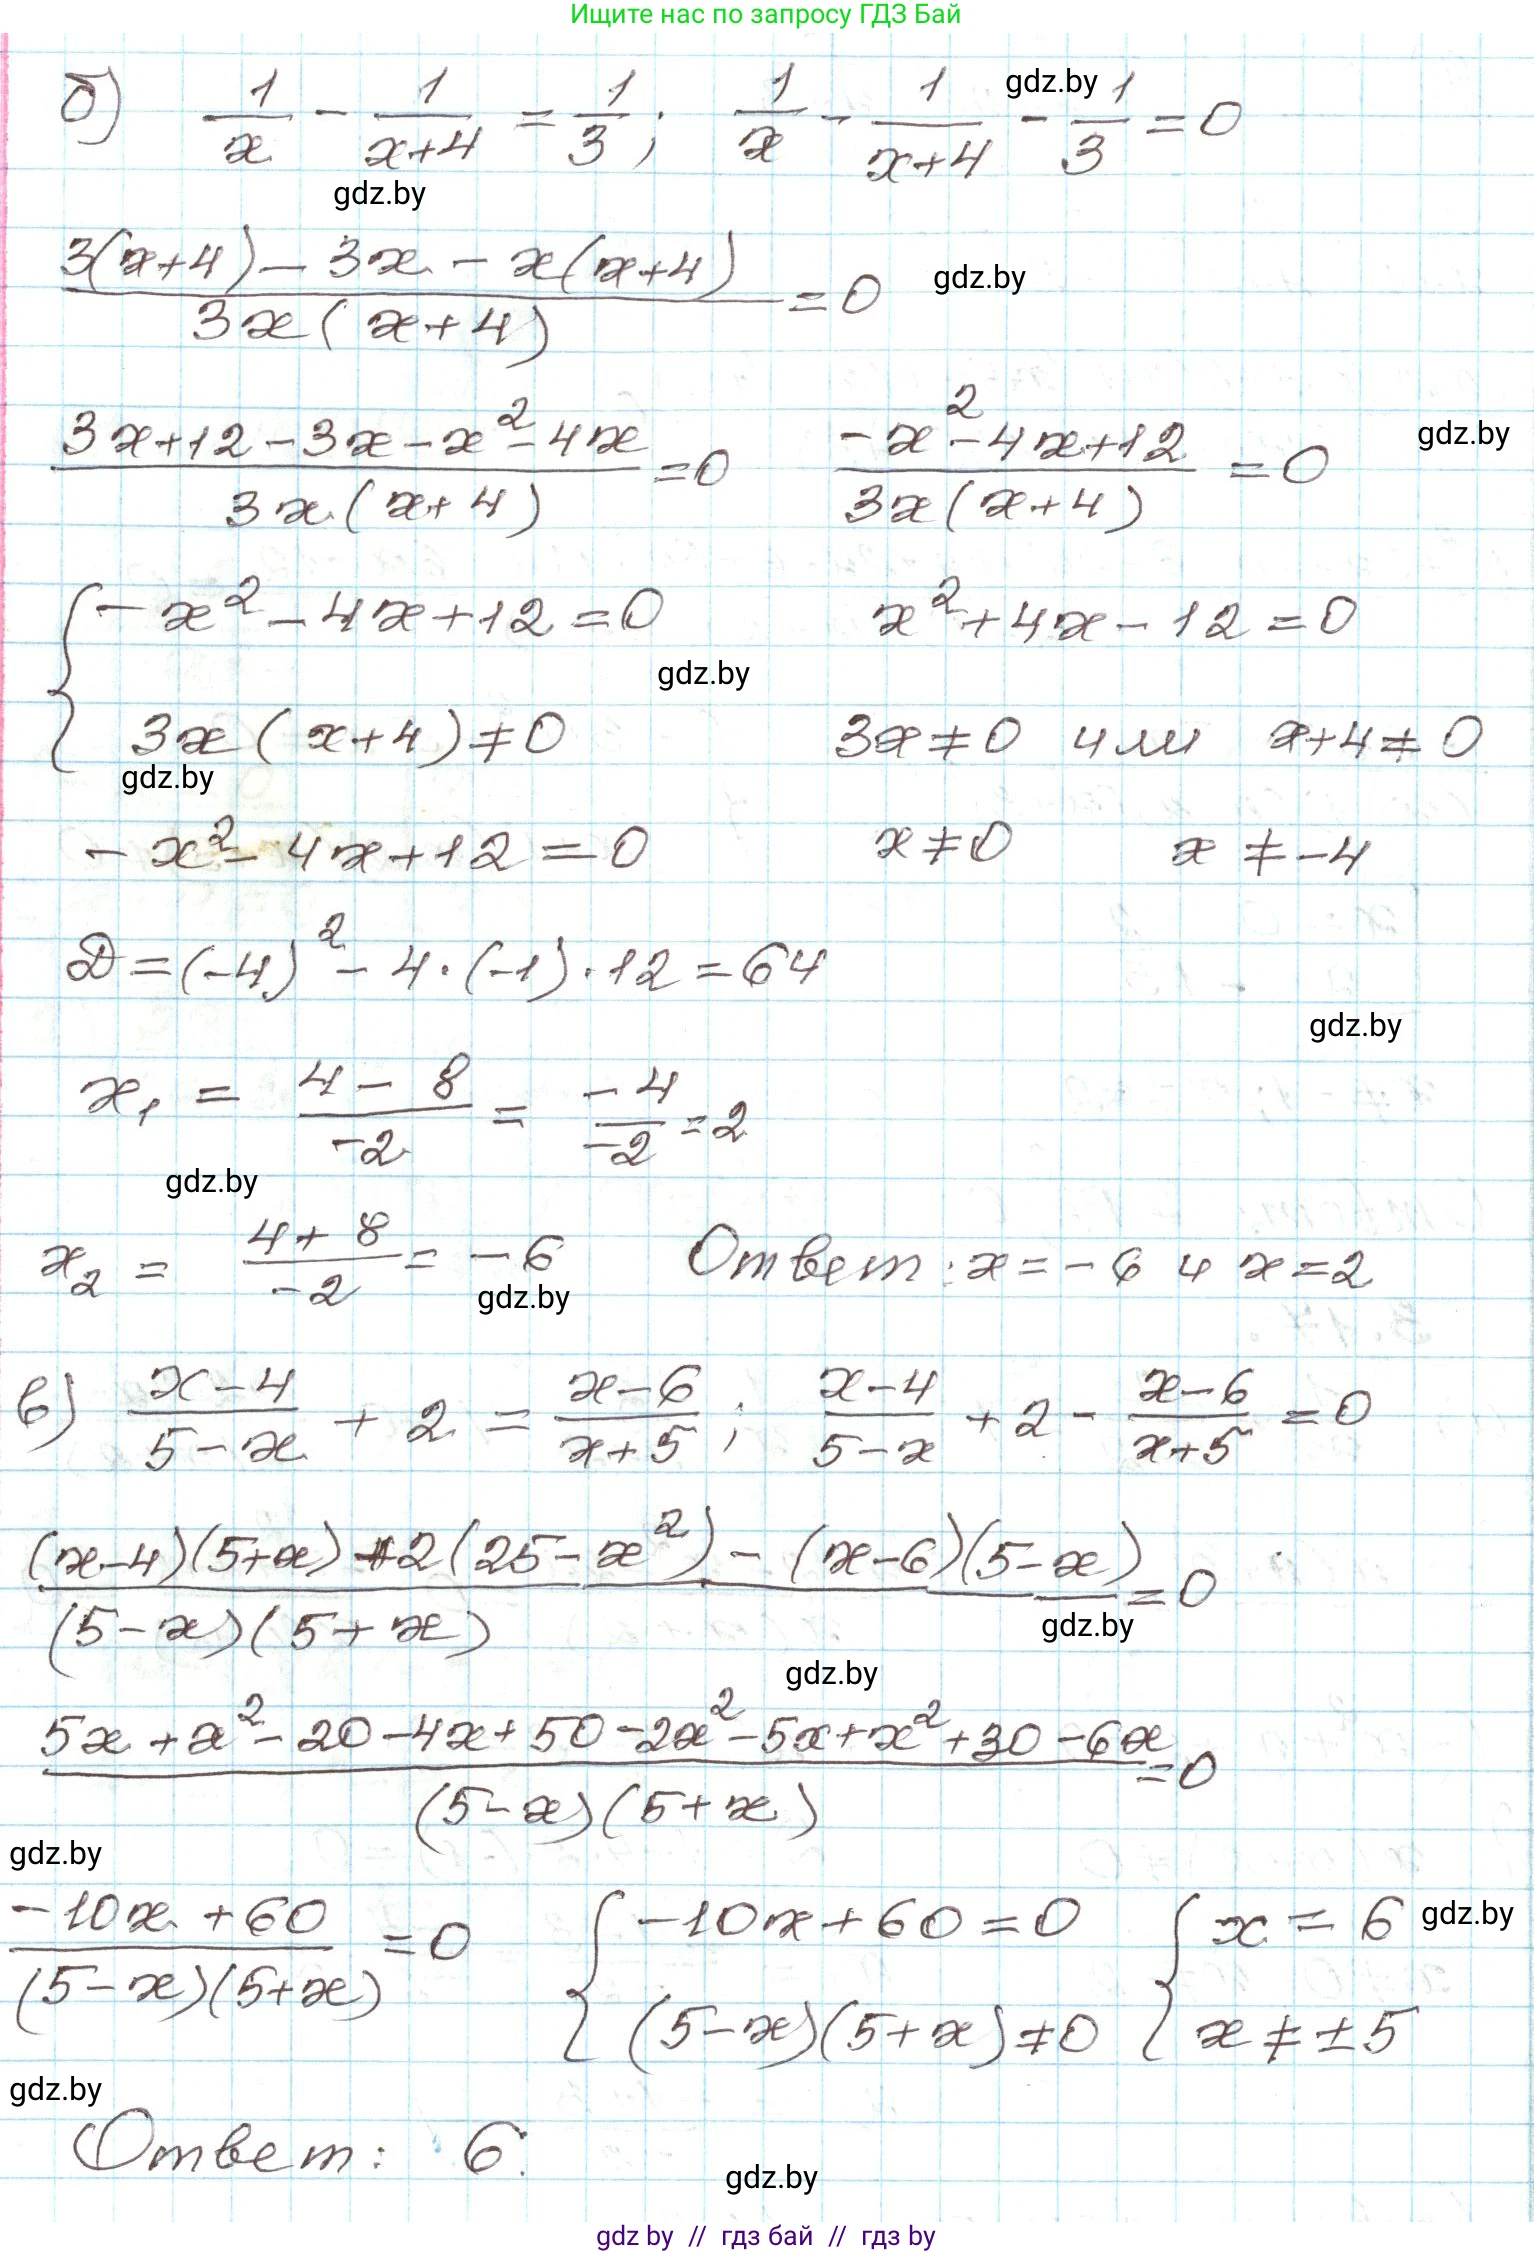 Ищите нас по запросу ГДЗ Бай
б) 1/x - 1/(x+4) = 1/3; 1/x - 1/(x+4) - 1/3 = 0
gdz.by
gdz.by
(3(x+4) - 3x - x(x+4))/(3x(x+4)) = 0
gdz.by
(3x+12-3x-x²-4x)/(3x(x+4)) = 0 (-x²-4x+12)/(3x(x+4)) = 0
gdz.by
{ -x²-4x+12=0 x²+4x-12=0
gdz.by
3x(x+4)≠0 3x≠0 или x+4≠0
gdz.by
-x²-4x+12=0 x≠0 x≠-4
D=(-4)²-4·(-1)·12=64
gdz.by
x₁ = (4-8)/(-2) = (-4)/(-2) = 2
gdz.by
x₂ = (4+8)/(-2) = -6 Ответ: x=-6 и x=2
gdz.by
в) (x-4)/(5-x) + 2 = (x-6)/(x+5); (x-4)/(5-x) + 2 - (x-6)/(x+5) = 0
((x-4)(5+x)+2(25-x²)-(x-6)(5-x))/((5-x)(5+x)) = 0
gdz.by
gdz.by
(5x+x²-20-4x+50-2x²-5x+x²+30-6x)/((5-x)(5+x)) = 0
gdz.by
(-10x+60)/((5-x)(5+x)) = 0 { -10x+60=0 { x=6
gdz.by
(5-x)(5+x)≠0 x≠±5
gdz.by
Ответ: 6.
gdz.by
gdz by // гдз бай // гдз by